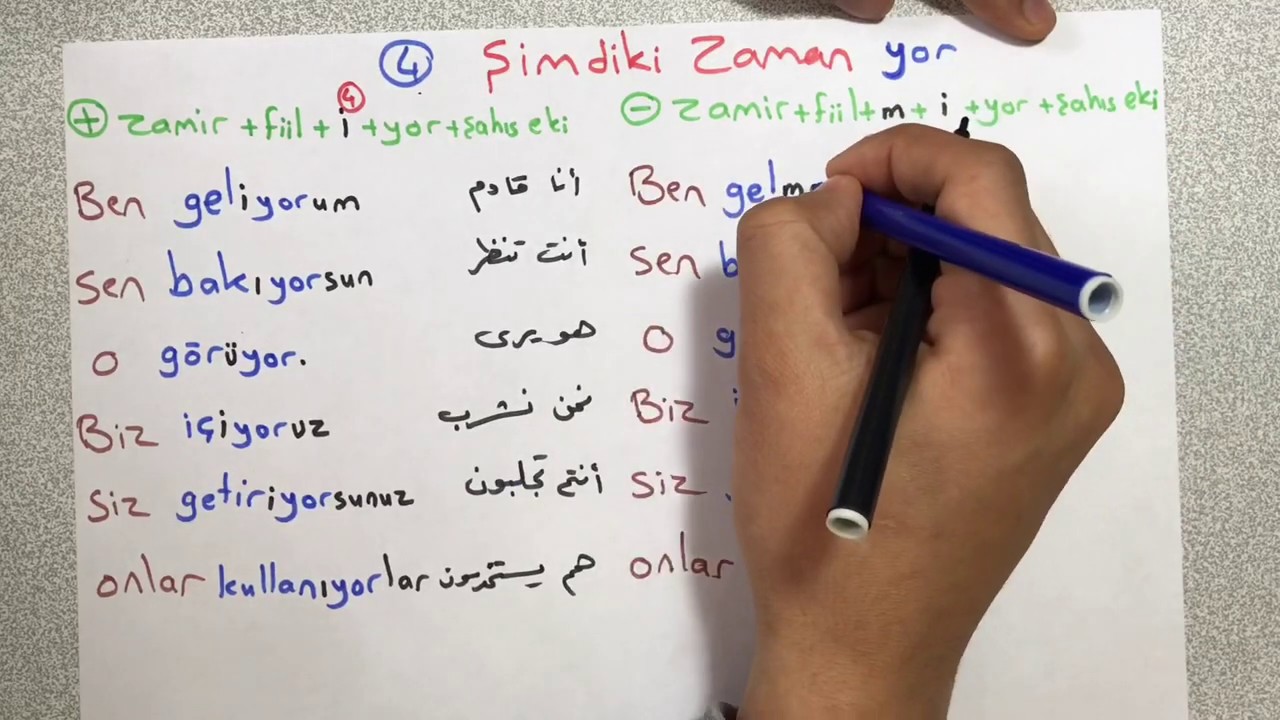 4 Şimdiki Zaman yor
+ zamir + fiil + i + yor + şahıs eki
4
- zamir + fiil + m + i + yor + şahıs eki
Ben geliyorum أنا قادم
Ben gelm
Sen bakıyorsun أنت تنظر
Sen b
O görüyor. هو يرى
O g
Biz içiyoruz نحن نشرب
Biz
Siz getiriyorsunuz أنتم تجلبون
Siz
onlar kullanıyorlar هم
onlar